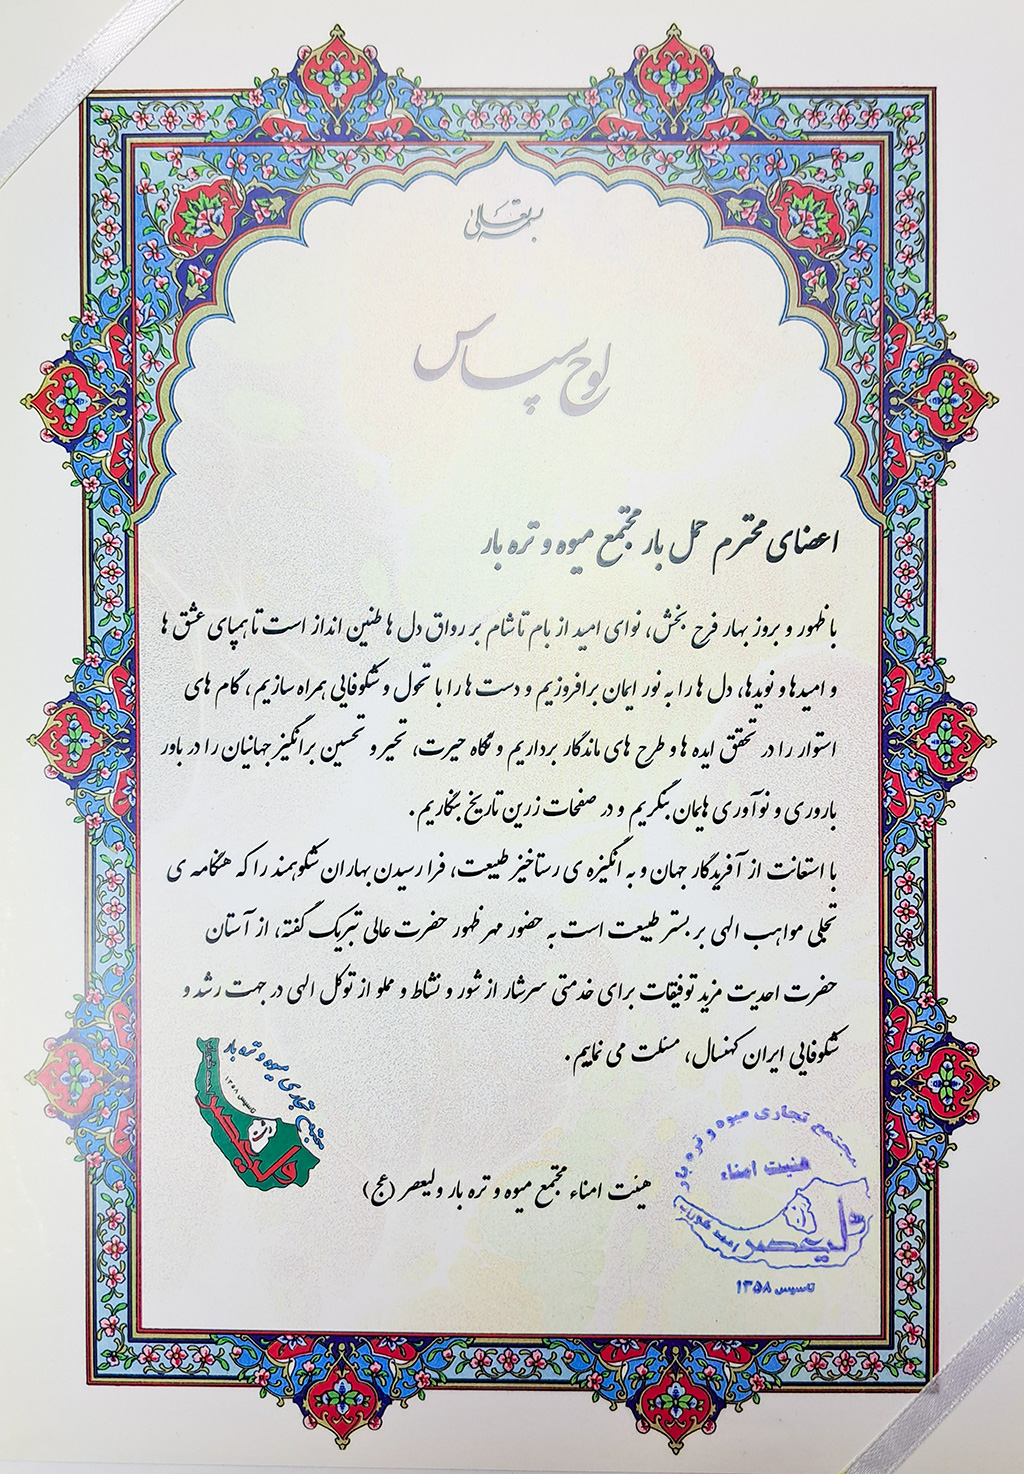 بسمه تعالی
لوح سپاس
اعضای محترم حمل بار مجتمع میوه و تره بار
با ظهور و بروز بهار فرح بخش، نوای امید از بام تا شام بر رواق دل ها طنین انداز است تا همپای عشق ها
و امیدها و نویدها، دل ها را به نور ایمان برافروزیم و دست ها را با تحول و شکوفایی همراه سازیم، گام های
استوار را در تحقق ایده ها و طرح های ماندگار برداریم و نگاه حیرت، تحیر و تحسین برانگیز جهانیان را در باور
باروری و نوآوری هایمان بنگریم و در صفحات زرین تاریخ بنگاریم.
با استعانت از آفریدگار جهان و به انگیزه ی رستاخیز طبیعت، فرا رسیدن بهاران شکوهمند را که هنگامه ی
تجلی مواهب الهی بر بستر طبیعت است به حضور مهر ظهور حضرت عالی تبریک گفته، از آستان
حضرت احدیت مزید توفیقات برای خدمتی سرشار از شور و نشاط و مملو از توکل الهی در جهت رشد و
شکوفایی ایران کهنسال، مسئلت می نماییم.
مجتمع تجاری میوه و تره بار
تاسیس ۱۳۵۸
ولیعصر
هیئت امناء مجتمع میوه و تره بار ولیعصر (عج)
مجتمع تجاری میوه و تره بار
هیئت امناء
ولیعصر
تاسیس ۱۳۵۸